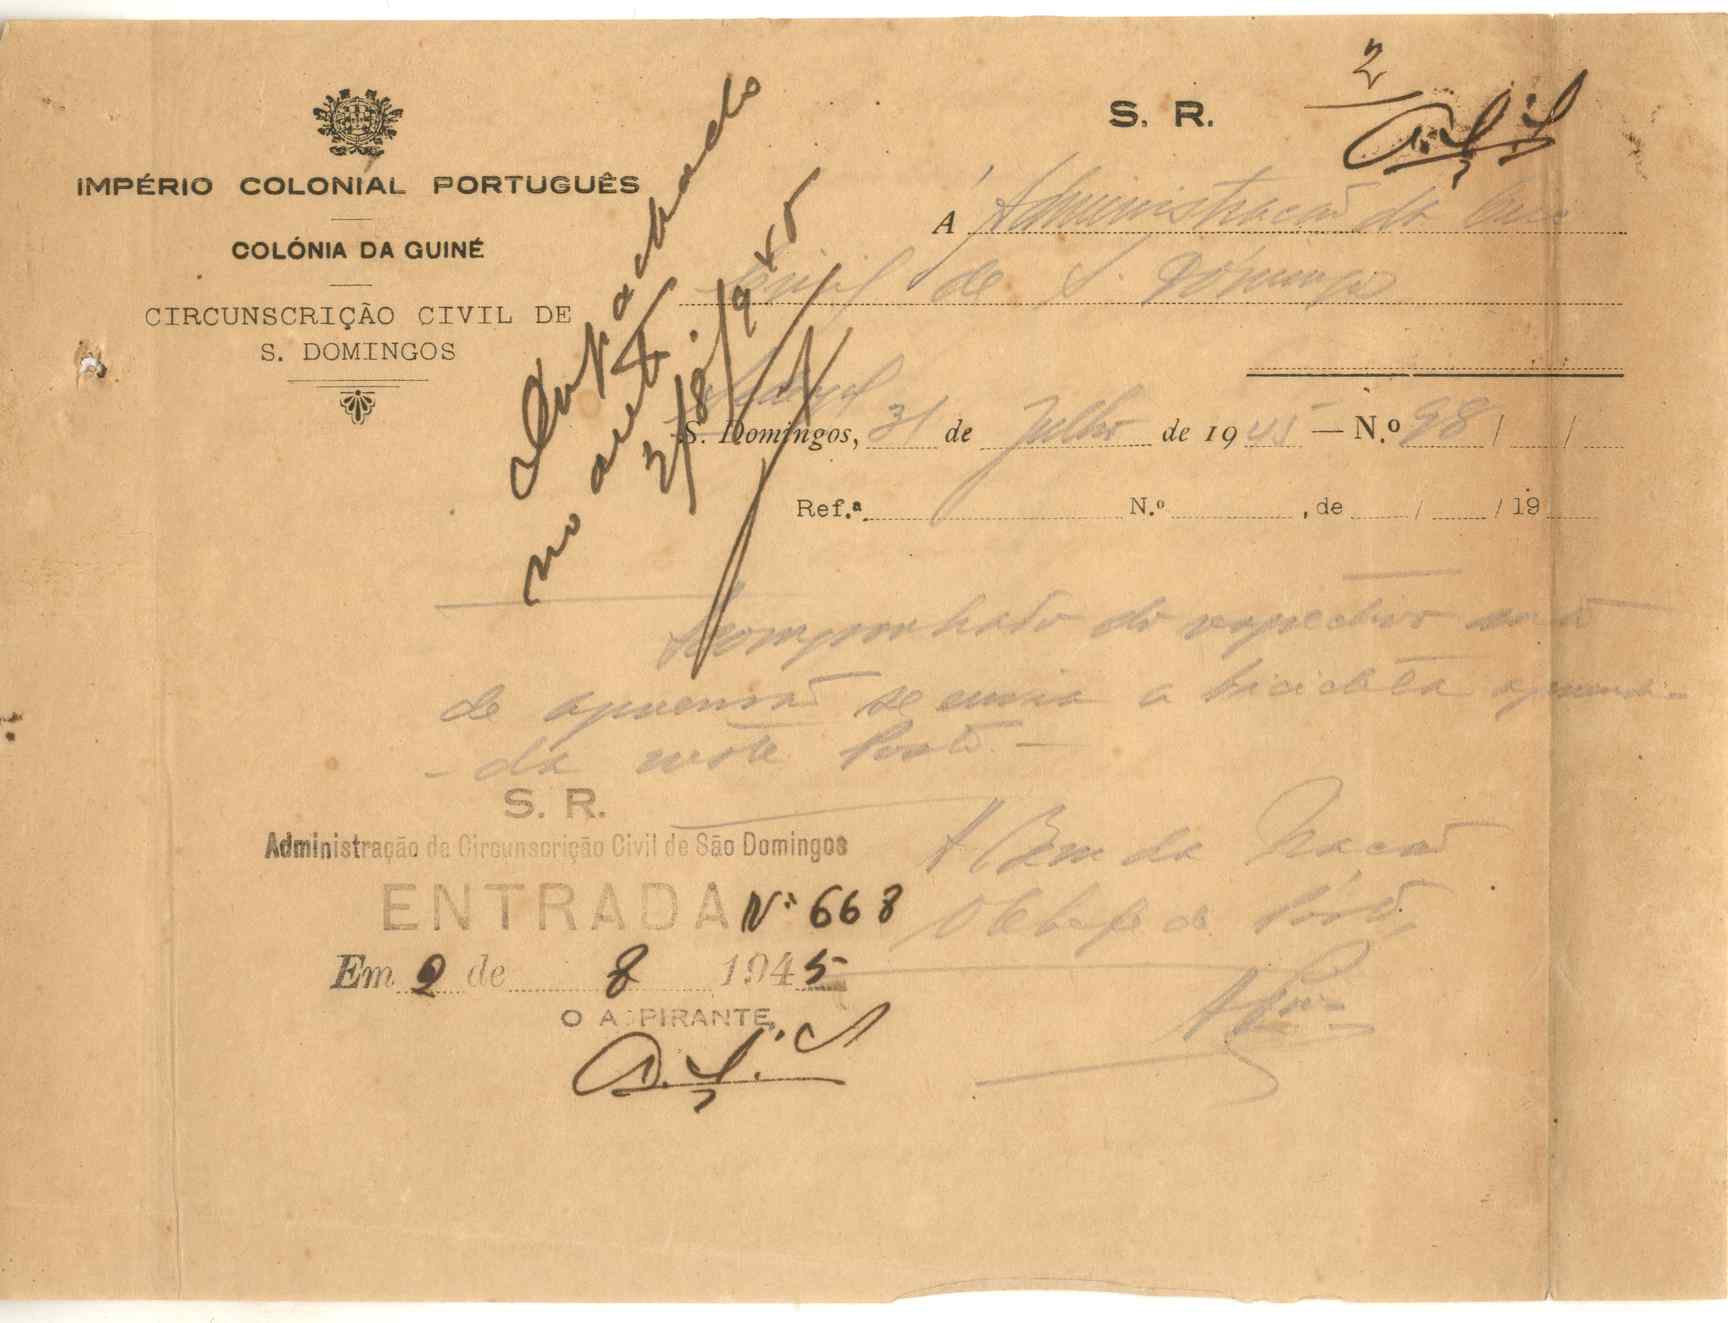 S. R.
2
IMPÉRIO COLONIAL PORTUGUÊS
COLÓNIA DA GUINÉ
CIRCUNSCRIÇÃO CIVIL DE
S. DOMINGOS
Despachado
no auto.
3/8/945
À Administração da Circ
Civil de S. Domingos
S. Domingos, 31 de Julho de 1945 — N.º 98 / /
Ref.ª N.º , de / / 19
Acompanhado do respectivo auto
de apreensão se envia a bicicleta apreendi-
-da neste Posto.—
A Bem da Nação
O Chefe de Posto,
S. R.
Administração da Circunscrição Civil de São Domingos
ENTRADA Nº 668
Em 2 de 8 1945
O ASPIRANTE,